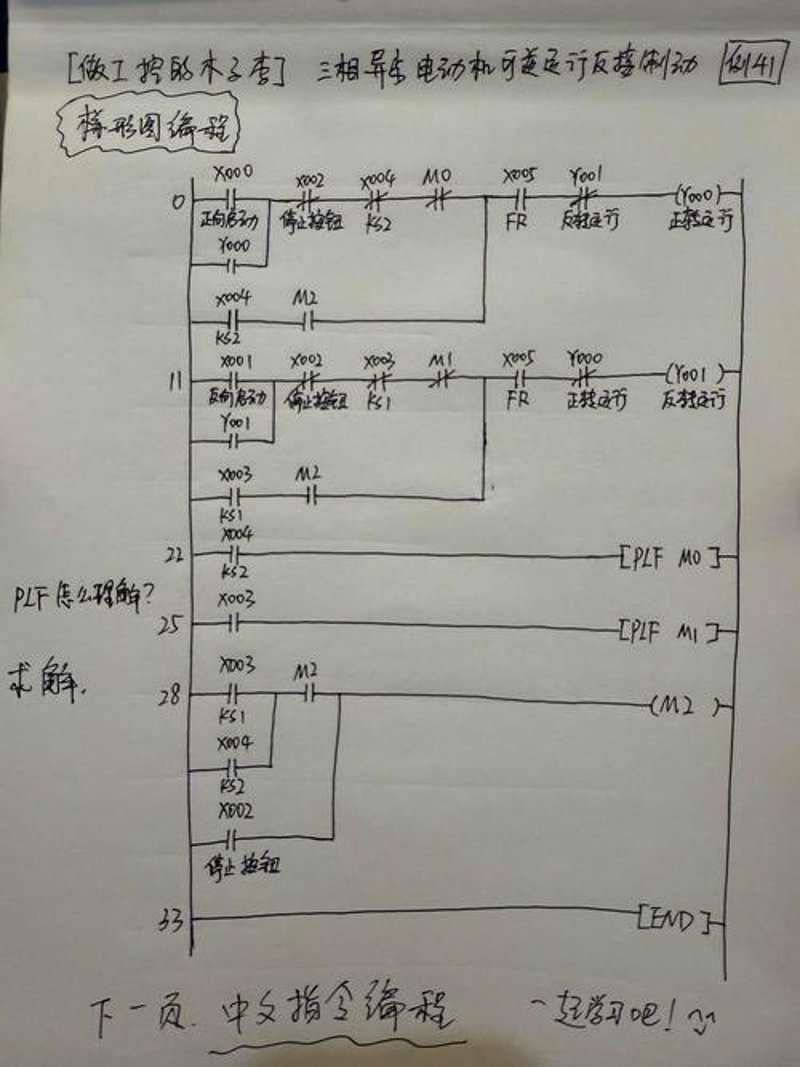 [做工控的木子李] 三相异步电动机可逆运行反接制动 例41
梯形图编程
X000 X002 X004 M0 X005 Y001
0 (Y000)
正向启动 停止按钮 KS2 FR 反转运行 正转运行
Y000
X004 M2
KS2
X001 X002 X003 M1 X005 Y000
11 (Y001)
反向启动 停止按钮 KS1 FR 正转运行 反转运行
Y001
X003 M2
KS1
X004
22 [PLF M0]
KS2
PLF怎么理解?
X003
25 [PLF M1]
求解.
X003 M2
28 (M2)
KS1
X004
KS2
X002
停止按钮
33 [END]
下一页. 中文指令编程 一起学习吧!